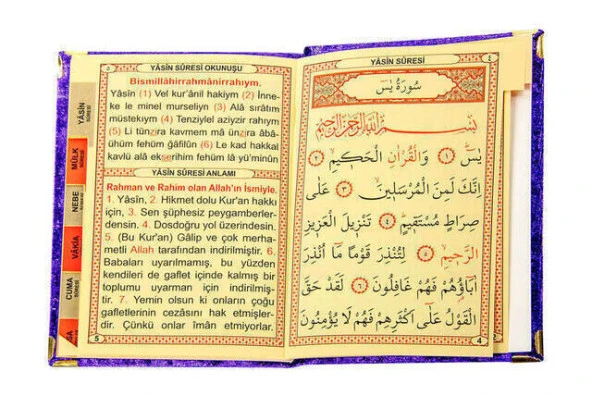 YÂSİN SÛRESİ OKUNUŞU
Bismillâhirrahmânirrahıym.
Yâsîn (1) Vel kur'ânil hakiym (2) İnne-
ke le minel murseliyn (3) Alâ sırâtım
müstekıym (4) Tenziylel aziyzir rahıym
(5) Li tünzira kavmem mâ ünzira âbâ-
ühüm fehüm ğâfilûn (6) Le kad hakkal
kavlü alâ ekserihim fehüm lâ yü'minûn
YÂSİN SÛRESİ ANLAMI
Rahman ve Rahim olan Allah'ın İsmiyle.
1. Yâsîn, 2. Hikmet dolu Kur'an hakkı
için, 3. Sen şüphesiz peygamberler-
densin. 4. Dosdoğru yol üzerindesin.
5. (Bu Kur'an) Gâlip ve çok merha-
metli Allah tarafından indirilmiştir. 6.
Babaları uyarılmamış, bu yüzden
kendileri de gaflet içinde kalmış bir
toplumu uyarman için indirilmiş-
tir. 7. Yemin olsun ki onların çoğu
gafletlerinin cezâsını hak etmişler-
dir. Çünkü onlar îmân etmiyorlar.
5
YÂSİN
SÛRESİ
MÜLK
SÛRESİ
NEBE
SÛRESİ
VÂKIA
SÛRESİ
CUMA
SÛRESİ
YÂSİN SÛRESİ
٤
سُورَةُ يٰسٓ
بِسْمِ اللّٰهِ الرَّحْمٰنِ الرَّحِيمِ
يٰسٓ ﴿١﴾ وَالْقُرْاٰنِ الْحَكِيمِ ﴿٢﴾
اِنَّكَ لَمِنَ الْمُرْسَلِينَ ﴿٣﴾ عَلٰى
صِرَاطٍ مُسْتَقِيمٍ ﴿٤﴾ تَنْزِيلَ الْعَزِيزِ
الرَّحِيمِ ﴿٥﴾ لِتُنْذِرَ قَوْمًا مَٓا اُنْذِرَ
اٰبَٓاؤُهُمْ فَهُمْ غَافِلُونَ ﴿٦﴾ لَقَدْ حَقَّ
الْقَوْلُ عَلٰٓى اَكْثَرِهِمْ فَهُمْ لَا يُؤْمِنُونَ
4